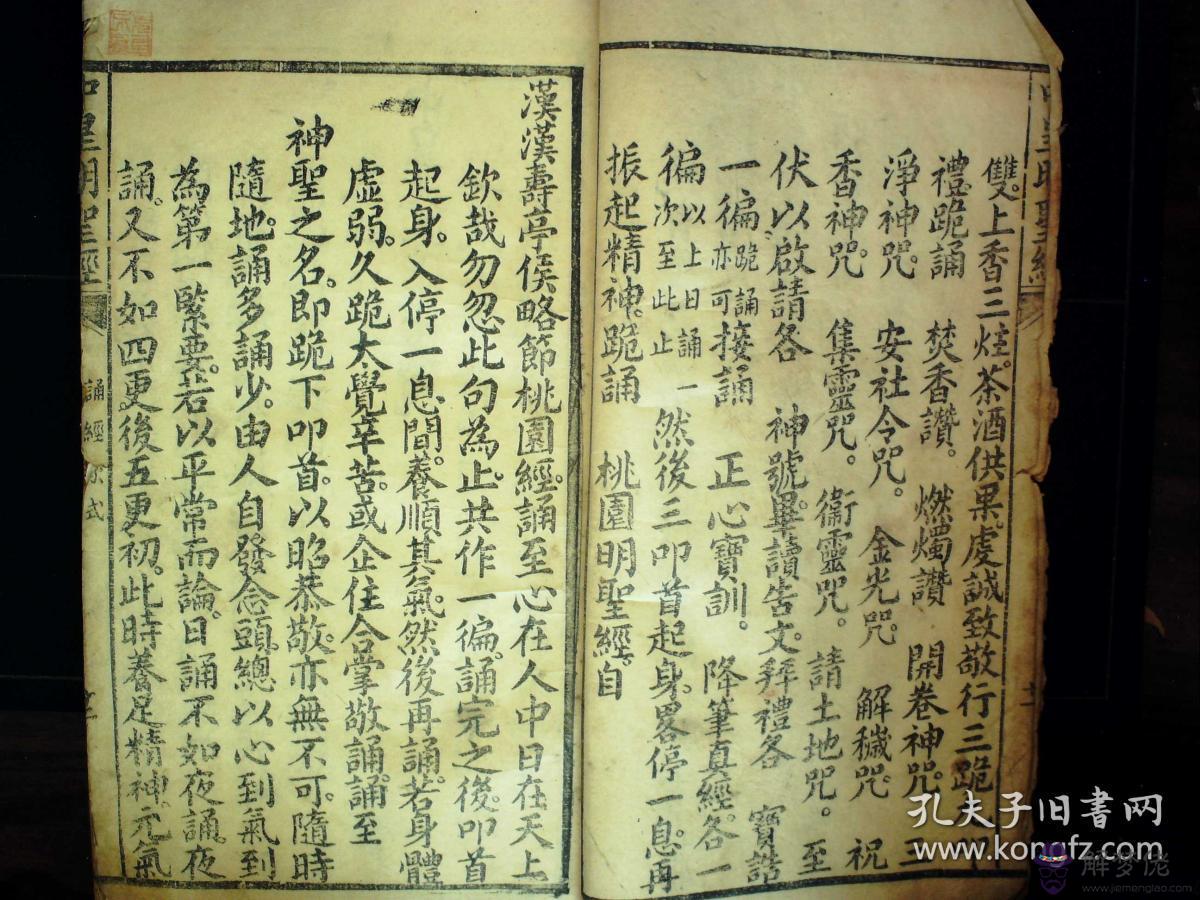 雙上香三炷。茶酒供果。虔誠致敬行三跪
禮。跪誦　焚香讚。　燃燭讚　開卷神咒。三
淨神咒。　安社令咒。　金光咒。　解穢咒。　祝
香神咒。　集靈咒。　衞靈咒。　請土地咒。　至
伏以啟請各　神號。畢讀告文。拜禮各　寶誥
一徧跪誦亦可接誦　正心寶訓。　降筆真經。各一
徧以上日誦一次至此止　然後三叩首起身。畧停一息。再
振起精神。跪誦　桃園明聖經。自
漢漢壽亭侯略節桃園經。誦至心在人中日在天上
欽哉勿忽此句為止。共作一徧。誦完之後。叩首
起身。入停一息間。養順其氣。然後再誦。若身體
虛弱。久跪大覺辛苦。或企住合掌敬誦。誦至
神聖之名。即跪下叩首。以昭恭敬。亦無不可。隨時
隨地。誦多誦少。由人自發念頭。總以心到氣到
為第一緊要。若以平常而論。日誦不如夜誦。夜
誦。又不如四更後五更初。此時養足精神。元氣
中皇明聖經
誦經
式
孔夫子旧书网
www.kongfz.com
解梦佬
www.jiemenglao.com